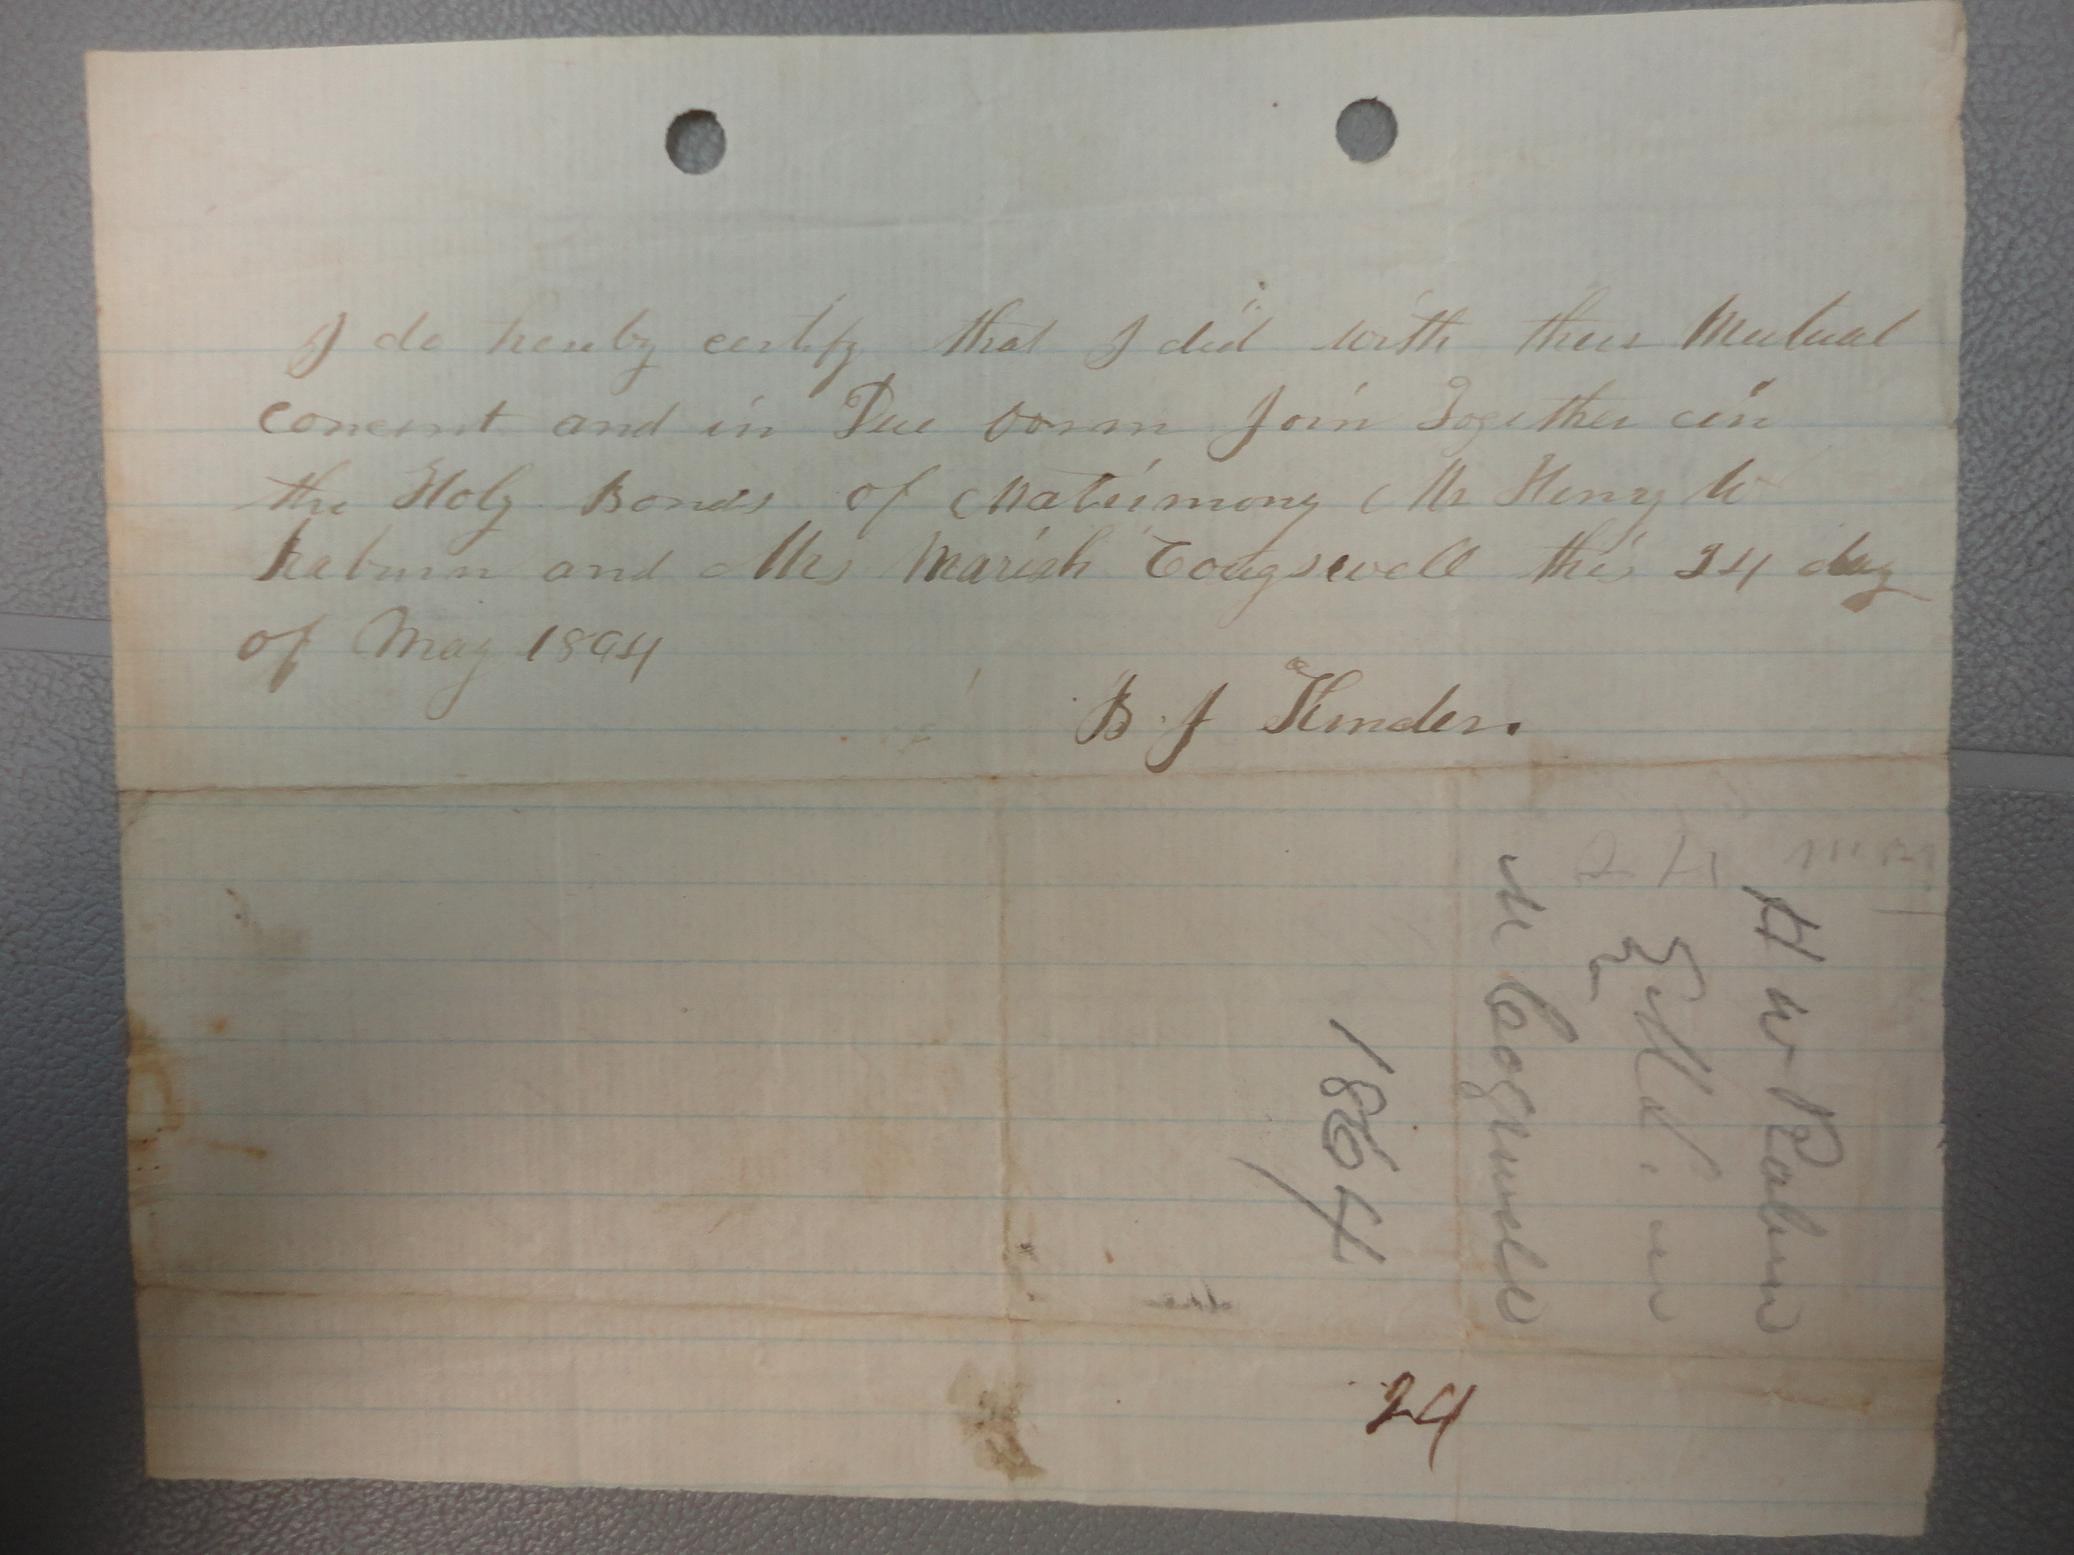 I do hereby certify that I did with their Mutual
concent and in Due form Join Together in
the Holy Bonds of Matrimony Mr Henry W
Raburn and Mrs Mariah Cougswell this 24 day
of May 1894
B. J Kinder.
24 May
H W Raburn
M Cogswell
1864
24